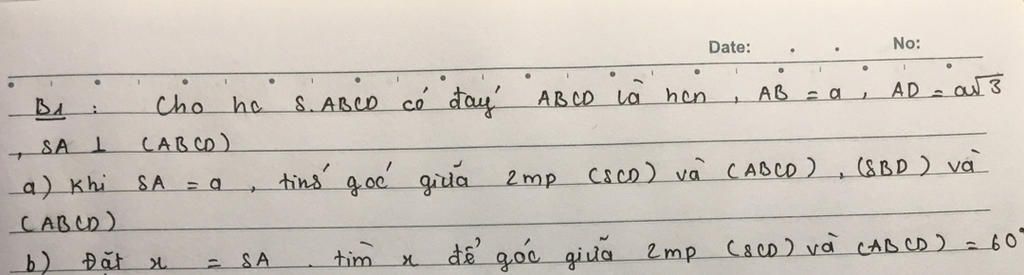 Date: . . No:
B1 : Cho hc S.ABCD có đáy ABCD là hcn , AB = a , AD = a√3
, SA ⊥ (ABCD)
a) Khi SA = a , tính góc giữa 2mp (SCD) và (ABCD) , (SBD) và
(ABCD)
b) Đặt x = SA . tìm x để góc giữa 2mp (SCD) và (ABCD) = 60°